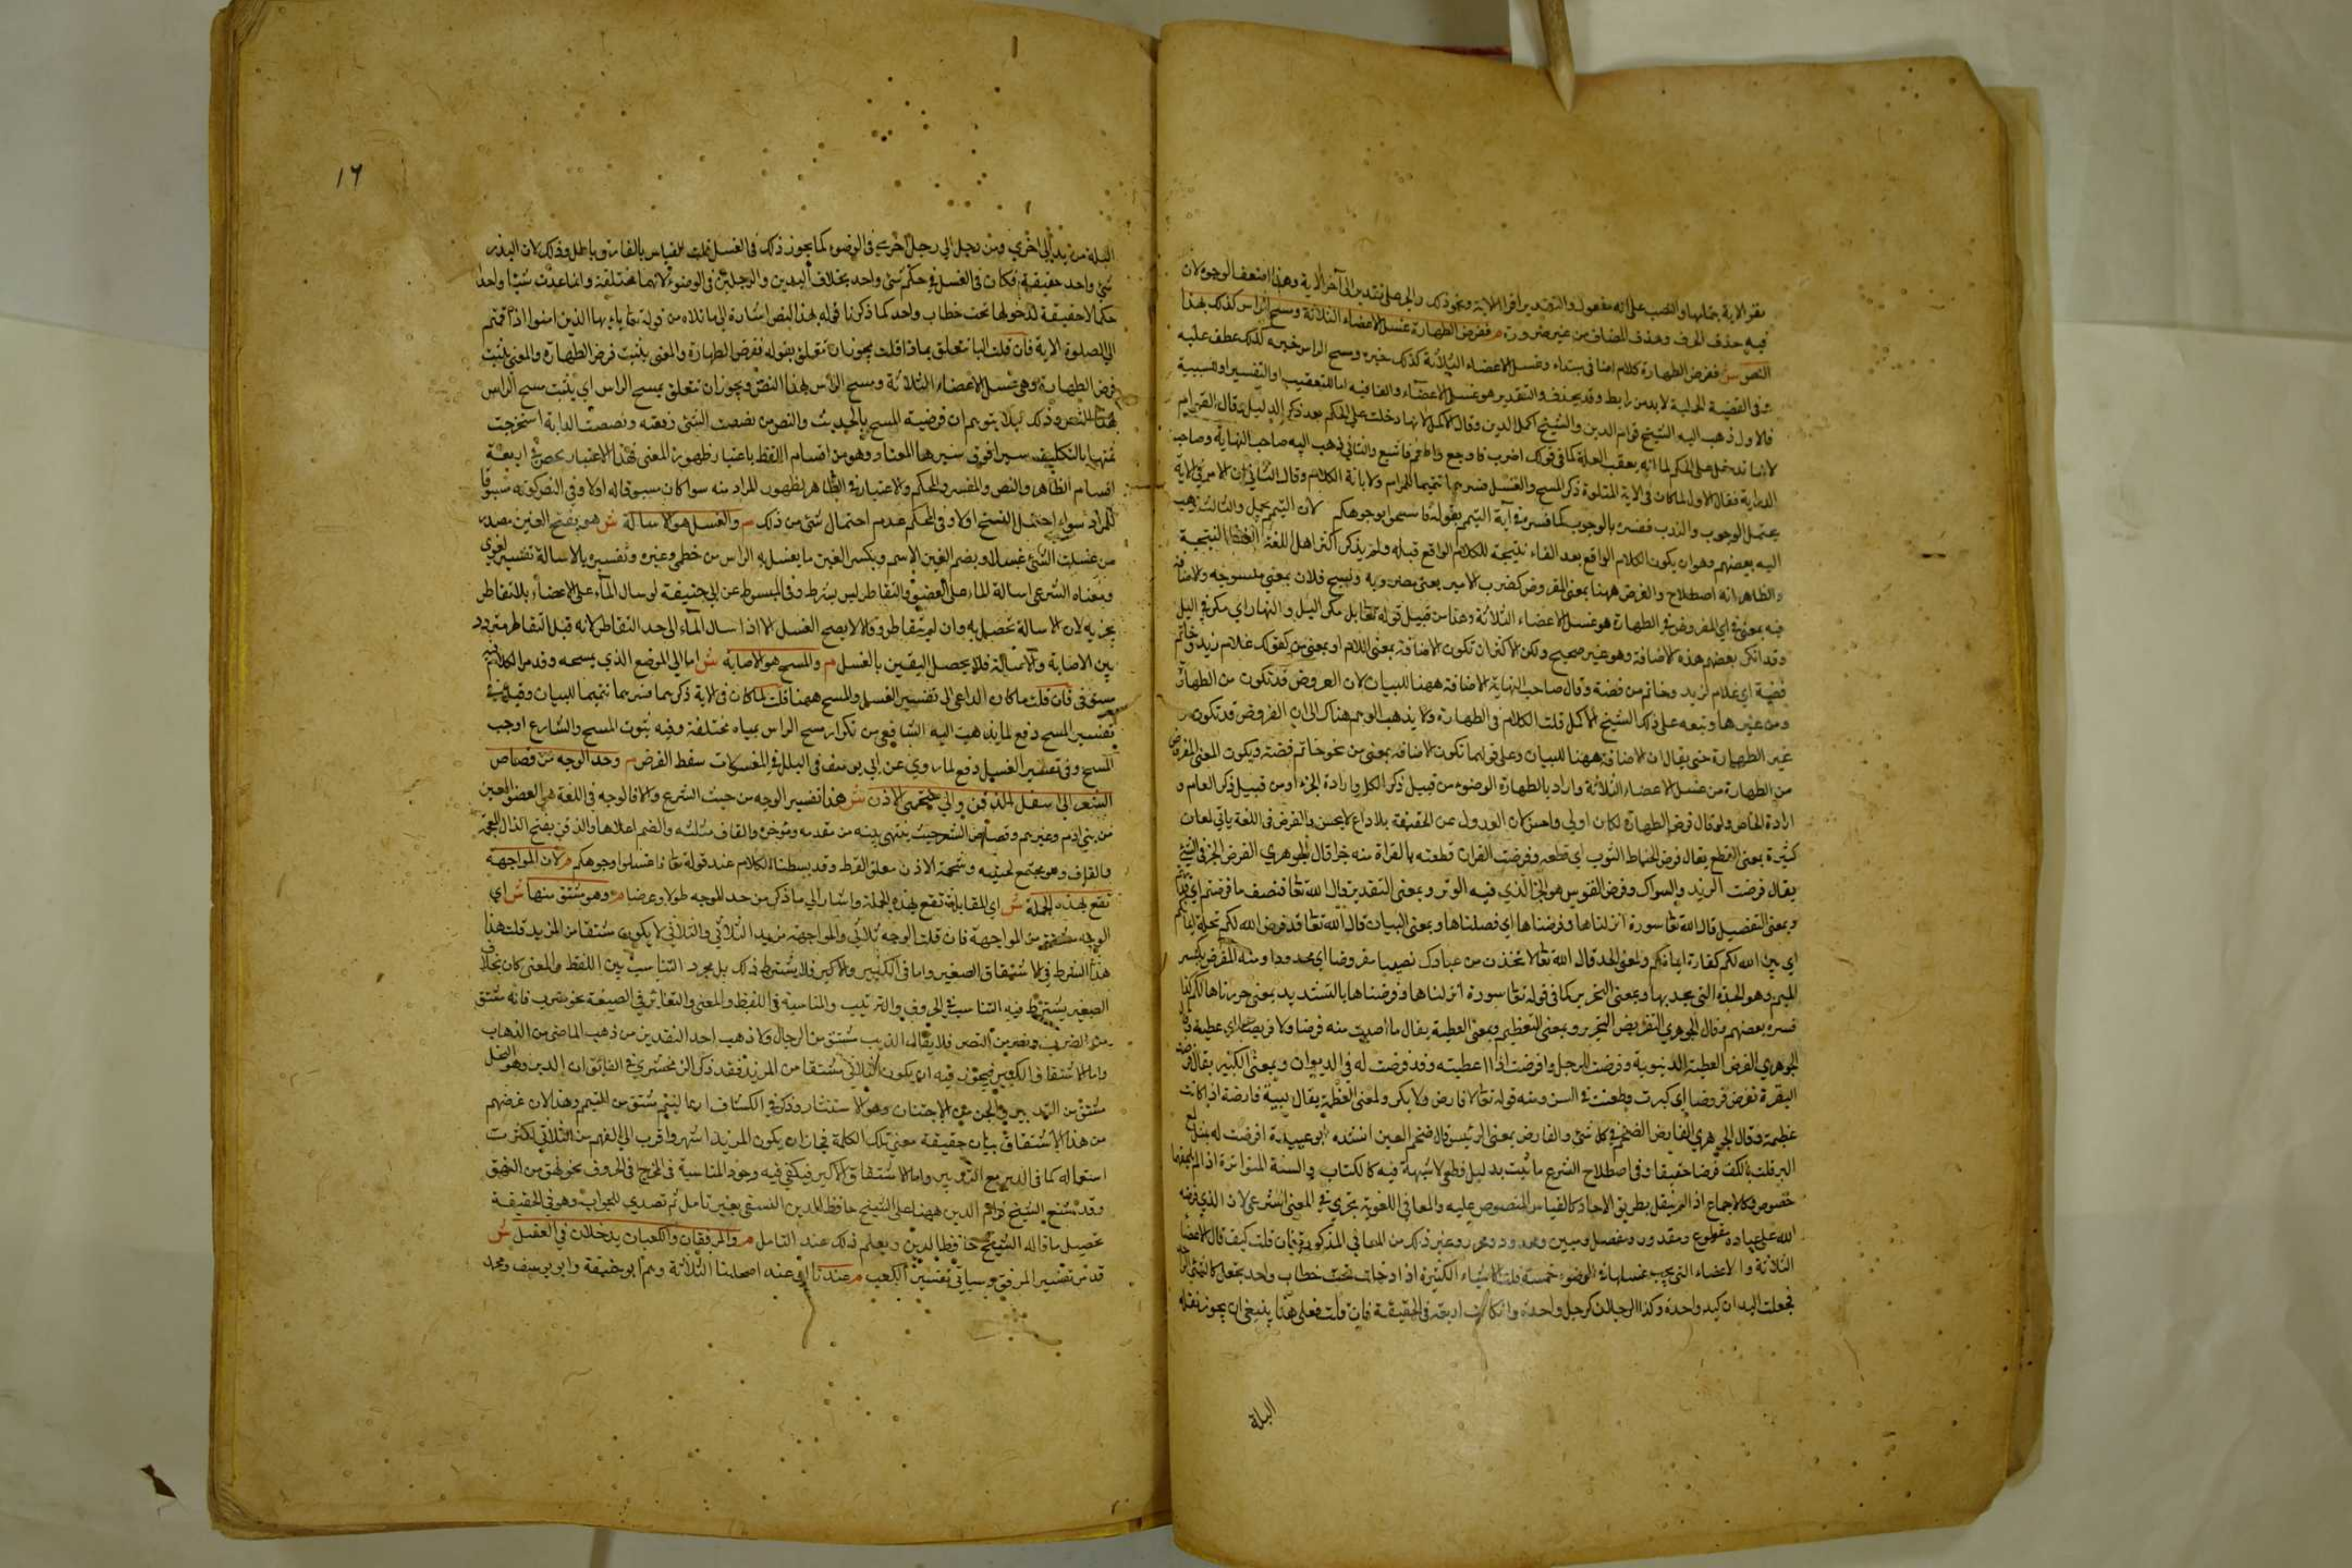 يقرا الاية بتمامها والنصب على انه مفعول والتقدير اقرا الاية ونحو ذلك والجر على تقدير الى آخر الاية وهذا اضعف الوجوه لان
فيه حذف الحرف وحذف المضاف من غير ضرورة م ففرض الطهارة غسل الاعضاء الثلاثة ومسح الراس كذلك بهذا
النص ش ففرض الطهارة كلام اضافي مبتداء وغسل الاعضاء الثلاثة كذلك خبره ومسح الراس خبره كذلك عطف عليه
وفي القضية الحملية لا بد من رابط وقد يحذف والتقدير هو غسل الاعضاء والفا فيه اما للتعقيب او التفسير او السببية
فالاول ذهب اليه الشيخ قوام الدين والشيخ اكمل الدين وقال الاكمل لانها دخلت على الحكم بعد ذكر الدليل وقال القوام
لانها تدخل على الحكم لما انه يعقب العلة كما في قولك اضرب فاوجع واطعم فاشبع والثاني ذهب اليه صاحب النهاية وصاحب
الدراية فقال الاول لما كان في الاية المتلوة ذكر المسح والغسل فسرهما تتميما للمرام ولابانة الكلام وقال الثاني ان الامر في الاية
يحتمل الوجوب والندب ففسره بالوجوب كما فسر في آية التيمم بقوله فامسحوا بوجوهكم لان التيمم مجمل والثالث ذهب
اليه بعضهم وهو ان يكون الكلام الواقع بعد الفاء نتيجة للكلام الواقع قبله ولم يذكر اكثر اهل اللغة النتيجة
والظاهر انه اصطلاح والفرض ههنا بمعنى المفروض كضرب الامير بمعنى مضروبه ونسيج فلان بمعنى منسوجه والاضافة
فيه بمعنى في اي المفروض في الطهارة هو غسل الاعضاء الثلاثة وهذا من قبيل قوله تعالى بل مكر الليل والنهار اي مكر في الليل
وقد انكر بعضهم هذه الاضافة وهو غير صحيح ولكن الاكثر ان تكون الاضافة بمعنى اللام او بمعنى من كقولك غلام زيد وخاتم
فضة اي غلام لزيد وخاتم من فضة وقال صاحب النهاية الاضافة ههنا للبيان لان الفروض قد تكون من الطهارة
ومن غيرها وتبعه على ذلك الشيخ الاكمل قلت الكلام في الطهارة ولا يذهب الوهم هناك الى ان الفروض قد تكون من
غير الطهارة حتى يقال ان الاضافة ههنا للبيان وعلى قولهما تكون الاضافة بمعنى من نحو خاتم فضة ويكون المعنى المفروض
من الطهارة من غسل الاعضاء الثلاثة واراد بالطهارة الوضوء من قبيل ذكر الكل وارادة الجزء او من قبيل ذكر العام و
ارادة الخاص ولو قال فرض الطهارة لكان اولى واحسن لان العدول عن الحقيقة بلا داع لا يحسن والفرض في اللغة ياتي لمعان
كثيرة بمعنى القطع يقال فرض الخياط الثوب اي قطعه وفرضت القران قطعته بالقراة منه جزا قال الجوهري الفرض الحز في الشيء
يقال فرضت الزند والسواك وفرض القوس هو الحز الذي فيه الوتر وبمعنى التقدير قال الله تعا فنصف ما فرضتم اي قدرتم
وبمعنى التفصيل قال الله تعا سورة انزلناها وفرضناها اي فصلناها وبمعنى البيان قال الله تعا قد فرض الله لكم تحلة ايمانكم
اي بين الله لكم كفارة ايمانكم ولمعنى الحد قال الله تعالى لاتخذن من عبادك نصيبا مفروضا اي محدودا ومنه المفرض بكسر
الميم وهو الحديدة التي يحد بها وبمعنى التحريز كما في قوله تعا سورة انزلناها وفرضناها بالتشديد بمعنى حرزناها لكم كذا
فسره بعضهم وقال الجوهري التفريض التحزيز وبمعنى التعظيم وبمعنى العطية يقال ما اصبت منه فرضا ولا قرضا اي عطية وقال
الجوهري الفرض العطية الدينوية وفرضت الرجل وافرضت اذا اعطيته وقد فرضت له في الديوان وبمعنى الكبير يقال فرضت
البقرة تفرض فروضا اي كبرت وطعنت في السن ومنه قوله تعا لا فارض ولا بكر ولمعنى العظم يقال لحية فارضة اذا كانت
عظيمة وقال الجوهري الفارض الضخم في كل شي والفارض بمعنى الرئيس قال ضخم العين انشده ابو عبيدة افرضت له بمثل لمع
البر قلت بالكف فرضا خفيفا وفي اصطلاح الشرع ما ثبت بدليل قطعي لا شبهة فيه كالكتاب والسنة المتواترة اذا لم يلحقها
خصوص وكالاجماع اذا لم ينقل بطريق الاحاد كالقياس المنصوص عليه والمعاني اللغوية تجري في المعنى الشرعي لان الذي فرضه
الله على عباده مقطوع ومقدور ومفصل ومبين ومحدود ومحرز وغير ذلك من المعاني المذكورة فان قلت كيف قال الاعضاء
الثلاثة والاعضاء التي يجب غسلها في الوضوء خمسة قلت الاشياء الكثيرة اذا دخلت تحت خطاب واحد يجعل كالشيء الواحد
فجعلت اليدان كيد واحدة وكذا الرجلان كرجل واحدة وان كانت اربعة في الحقيقة فان قلت فعلى هذا ينبغي ان يجوز نقله
البلة
١٦
البلة من يد الى اخري ومن رجل الى رجل اخري في الوضوء كما يجوز ذلك في الغسل قلت القياس بالفارق باطل وذلك لان البدن
شي واحد حقيقة فكان في الغسل في حكم شي واحد بخلاف اليدين والرجلين في الوضوء لانهما مختلفة وانما عدت شيئا واحدا
حكما لا حقيقة لدخولها تحت خطاب واحد كما ذكرنا قوله بهذا النص اشارة الى ما تلاه من قوله تعا يا ايها الذين امنوا اذا قمتم
الى الصلوة الاية فان قلت البا تتعلق بماذا قلت يجوز ان تتعلق بقوله ففرض الطهارة والمعنى يثبت فرض الطهارة والمعنى يثبت
فرض الطهارة وهي غسل الاعضاء الثلاثة ومسح الراس بهذا النص ويجوز ان تتعلق بمسح الراس اي يثبت مسح الراس
بهذا النص وذلك لئلا يتوهم ان فرضية المسح بالحديث والنص من نصصت الشيء رفعته ونصصت الدابة استخرجت
منتهيا بالتكليف سيرا فوق سيرها المعتاد وهو من اقسام اللفظ باعتبار ظهور المعنى فهذا الاعتبار يحصر في اربعة
اقسام الظاهر والنص والمفسر والمحكم والاعتبار في الظاهر بظهور المراد منه سوا كان مسوقا له اولا وفي النص كونه مسوقا
للمراد سواء احتمل النسخ اولا وفي المحكم عدم احتمال شي من ذلك م والغسل هو الاسالة ش هو بفتح الغين مصدر
من غسلت الشي غسلا وبضم الغين الاسم وبكسر الغين ما يغسل به الراس من خطمي وغيره وتفسيره بالاسالة تفسير لغوي
ومعناه الشرعي اسالة الماء على العضو والتقاطر ليس بشرط وفي المبسوط عن ابي حنيفة لو سال الماء على الاعضاء بلا تقاطر
يجزيه لان الاسالة تحصل به وان لم يتقاطر وقالا لا يصح الغسل الا اذا سال الماء الى حد التقاطر لانه قبل التقاطر متردد
بين الاصابة والاسالة فلا يحصل اليقين بالغسل م والمسح هو الاصابة ش اما الى الموضع الذي يمسحه وقد مر الكلام فيه
مستوفى فان قلت ما كان الداعي الى تفسير الغسل والمسح ههنا قلت لما كان في الاية ذكرهما فسرهما تتميما للبيان وقيل في
تفسير المسح دفع لما يذهب اليه الشافعي من تكرار مسح الراس بمياه مختلفة وفيه ثبوت المسح والشارع اوجب
المسح وفي تفسير الغسل دفع لما روي عن ابي يوسف في البلل في المغسولات سقط الفرض م وحد الوجه من قصاص
الشعر الى اسفل الذقن والى شحمتي الاذن ش هذا تفسير الوجه من حيث الشرع والا فالوجه في اللغة هي العضو المعين
من بني ادم وغيرهم وقصاص الشعر حيث ينتهي نبته من مقدمه ومؤخره والقاف مثلثه والضم اعلاها والذقن بفتح الذال المعجمة
والقاف وهو مجتمع لحييه وشحمة الاذن معلق القرط وقد بسطنا الكلام عند قوله تعا فاغسلوا وجوهكم م لان المواجهة
تقع بهذه الجملة ش اي المقابلة تقع بهذه الجملة واشار الى ما ذكر من حد الوجه طولا وعرضا م وهو مشتق منها ش اي
الوجه مشتق من المواجهة فان قلت الوجه ثلاثي والمواجهة مزيد الثلاثي والثلاثي لا يكون مشتقا من المزيد قلت هذا
هذا الشرط في الاشتقاق الصغير واما في الكبير والاكبر فلا يشترط ذلك بل مجرد التناسب بين اللفظ والمعنى كان بخلاف
الصغير يشترط فيه التناسب في الحروف والترتيب والمناسبة في اللفظ والمعنى والتغاير في الصيغة نحو ضرب فانه مشتق
من الضرب ونصر من النصر فلا يقال الذيب مشتق من الرجال ولا ذهب احد النقدين من ذهب الماضي من الذهاب
واما الاشتقاق الكبير فيجوز فيه ان يكون الثلاثي مشتقا من المزيد فقد ذكر الزمخشري في الفائق ان الدبر وهو النحل
مشتق من التدبير والجن من الاجتنان وهو الاستتار وذكر في الكشاف ان اليتيم مشتق من التيمم وهذا لان غرضهم
من هذا الاشتقاق بيان حقيقة معنى تلك الكلمة فجاز ان يكون المزيد اشهر واقرب الى الفهم من الثلاثي لكثرت
استعماله كما في الدبر مع التدبير واما الاشتقاق الاكبر فيكفي فيه وجود المناسبة في المخرج في الحروف نحو نهق من النعق
وقد شنع الشيخ قوام الدين ههنا على الشيخ حافظ الدين النسفي بغير تامل ثم تصدي للجواب وهو في الحقيقة
تحصيل ما قاله الشيخ حافظ الدين ويعلم ذلك عند التامل م والمرفقان والكعبان يدخلان في الغسل ش
قد مر تفسير المرفق وسياتي تفسير الكعب م عندنا اي عند اصحابنا الثلاثة وهم ابو حنيفة وابو يوسف ومحمد